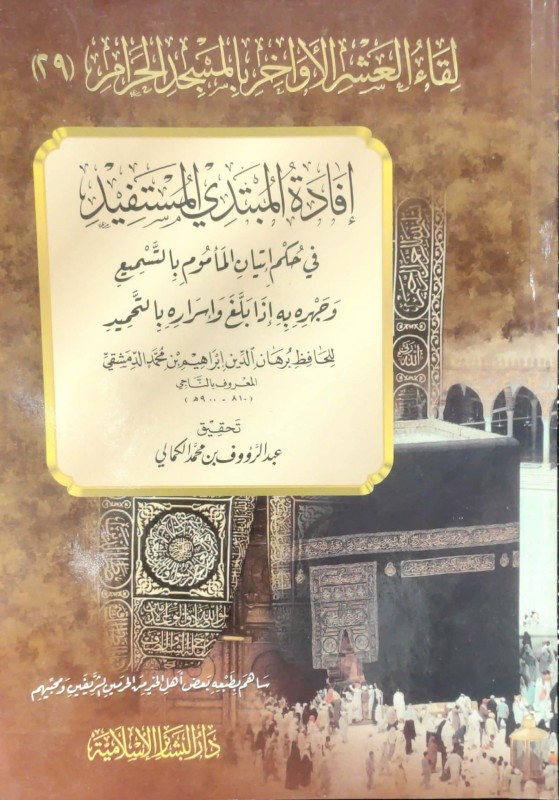 لِقَاءُ العَشْرِ الأَوَاخِرِ بِالمَسْجِدِ الحَرَامِ (٢٩)
إِفَادَةُ المُبْتَدِي المُسْتَفِيدِ
فِي حُكْمِ إِتْيَانِ المَأْمُومِ بِالتَّسْمِيعِ
وَجَهْرِهِ بِهِ إِذَا بَلَّغَ وَإِسْرَارِهِ بِالتَّحْمِيدِ
لِلْحَافِظِ بُرْهَانِ الدِّينِ إِبْرَاهِيمَ بْنِ مُحَمَّدٍ الدِّمَشْقِيِّ
المَعْرُوفِ بِالنَّاجِي
(٨١٠ - ٩٠٠ هـ)
تَحْقِيق
عبد الرؤوف بن محمد الكمالي
ساهم بطبعه بعض أهل الخير من الحرمين الشريفين ومحبيهم
دَارُ البَشَائِرِ الإِسْلَامِيَّة